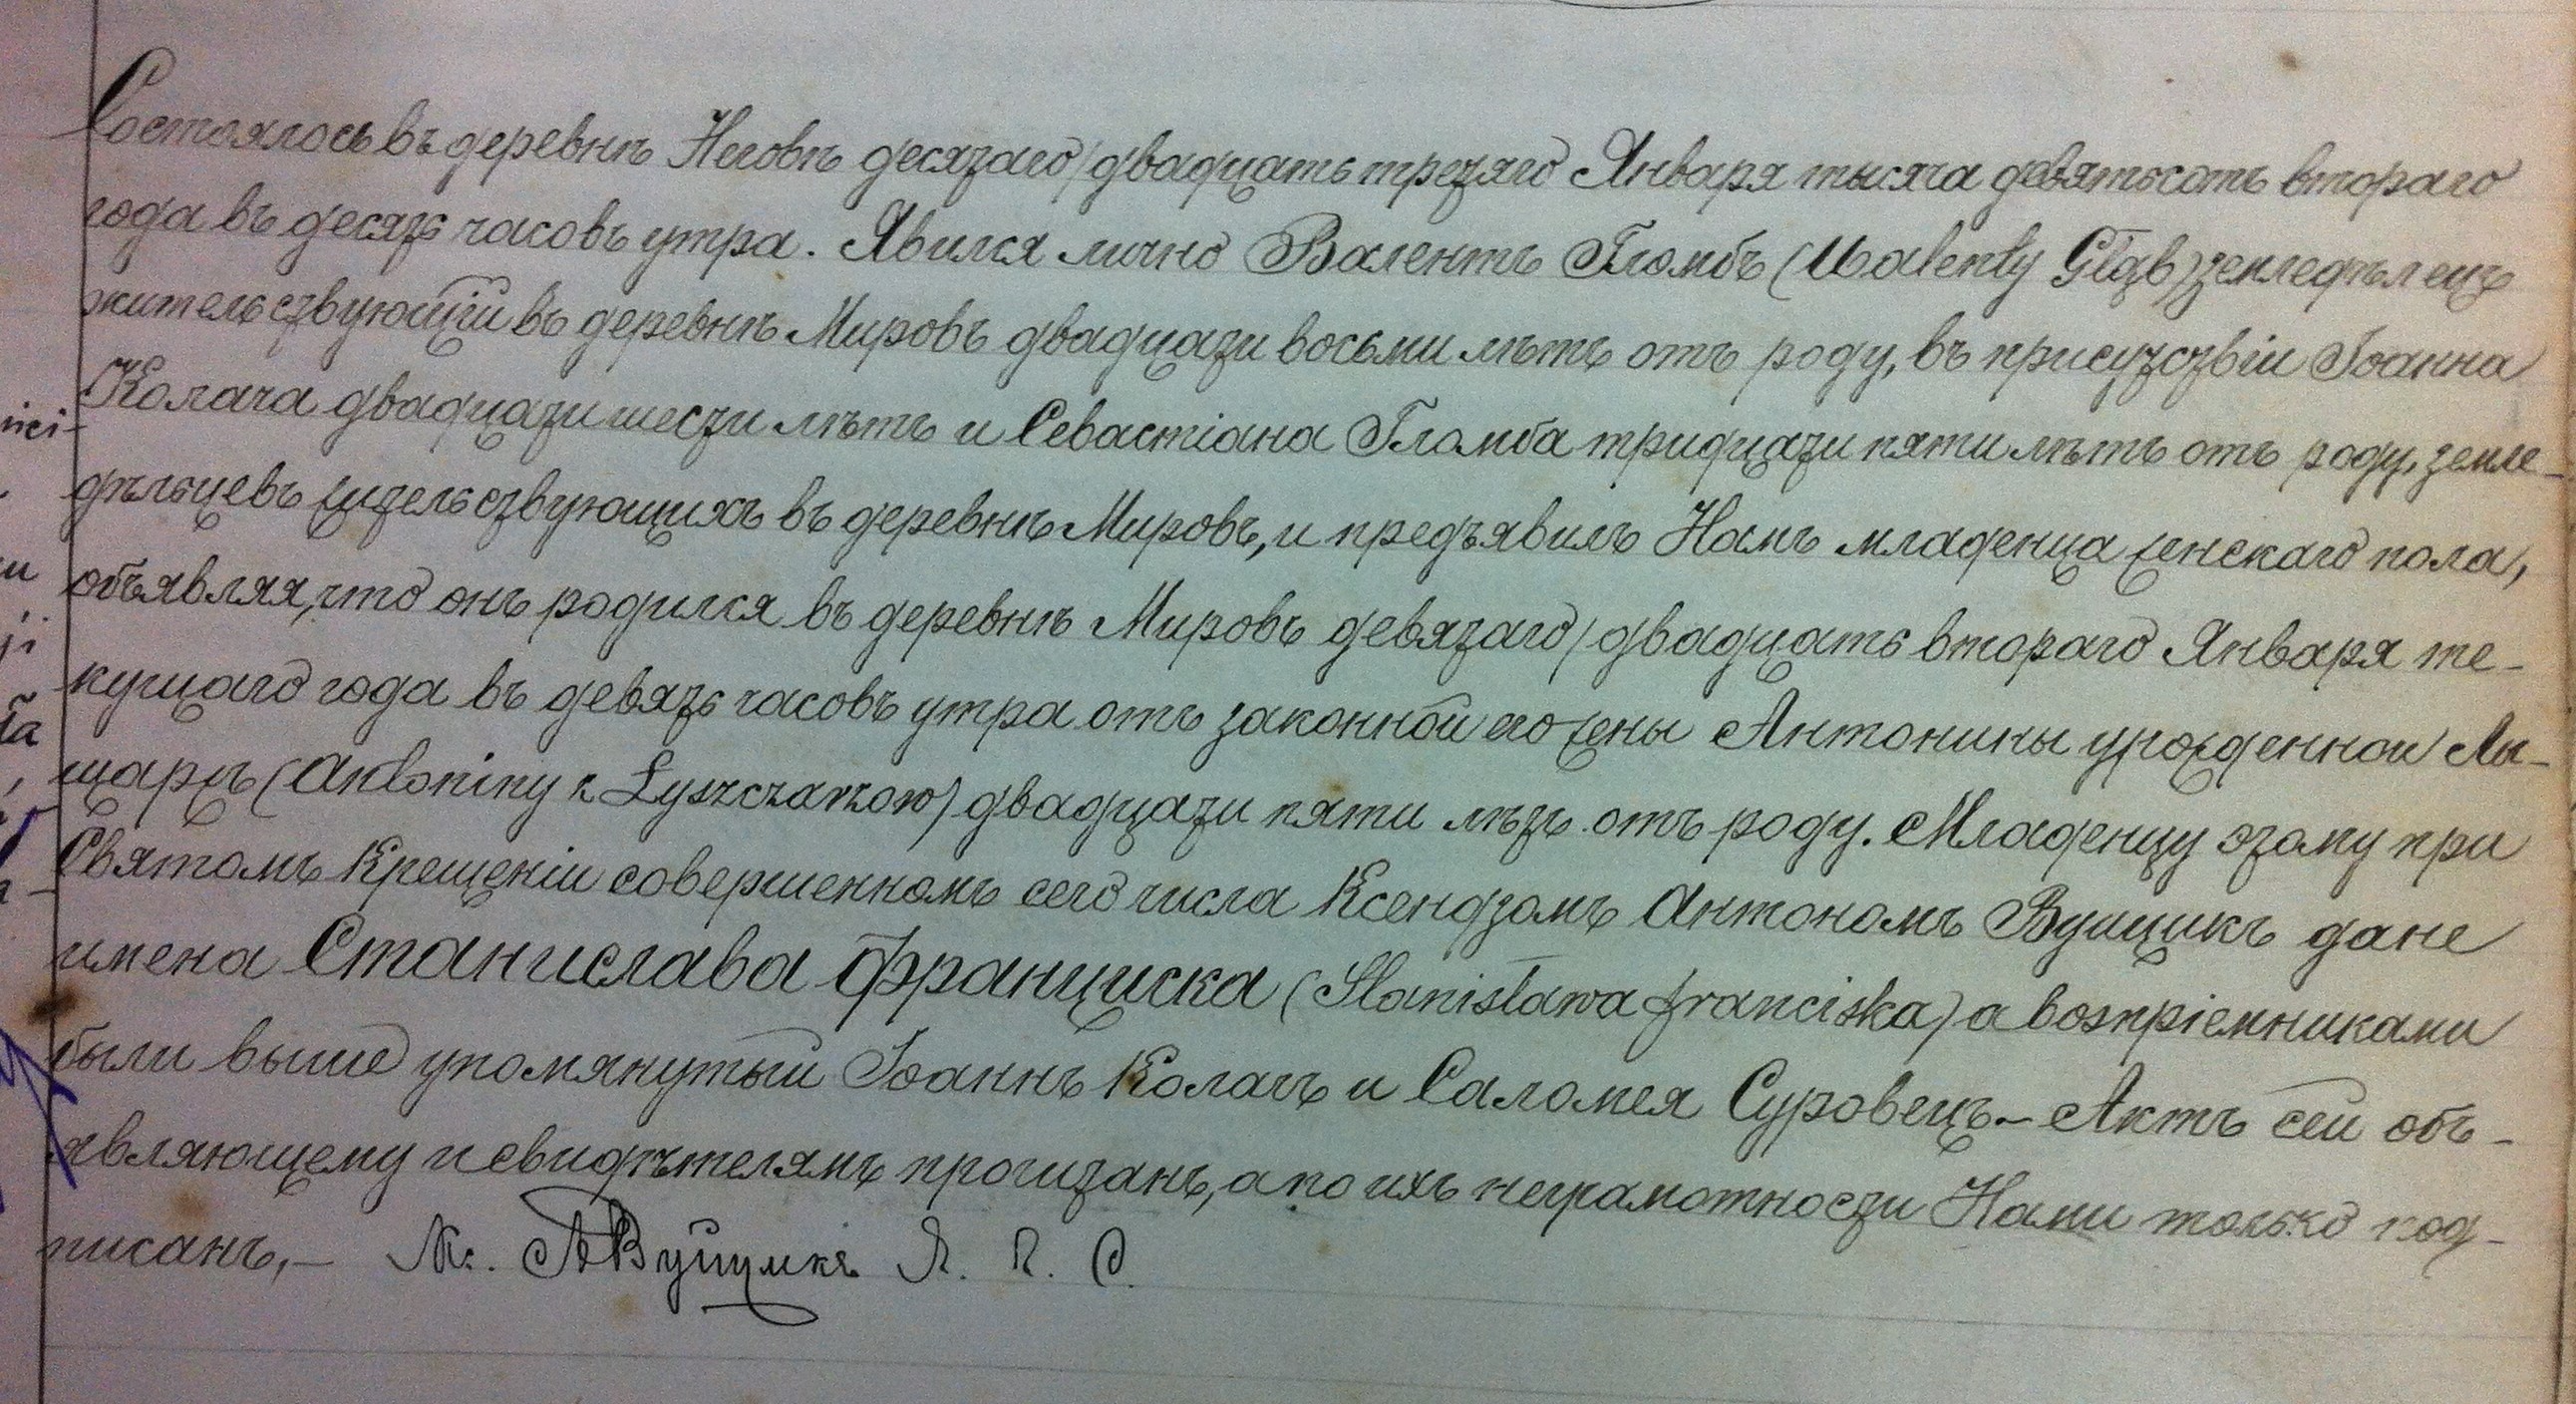 Состоялось въ деревнѣ Неговѣ десятаго/двадцать третяго Января тысяча девятьсотъ втораго
года въ десять часовъ утра. Явился лично Валентъ Гломбъ (Walenty Głąb) земледѣлецъ
жительствующій въ деревнѣ Мировъ двадцати восьми лѣтъ отъ роду, въ присутствіи Іоанна
Колача двадцати шести лѣтъ и Севастіана Гломба тридцати пяти лѣтъ отъ роду, земле-
дѣльцевъ жительствующихъ въ деревнѣ Мировъ, и предъявилъ Намъ младенца женскаго пола,
объявляя, что онъ родился въ деревнѣ Мировъ девятаго/двадцать втораго Января те-
кущаго года въ девять часовъ утра отъ законной его жены Антонины урожденной Лы-
щаръ (Antoniny z Łyszczarzow) двадцати пяти лѣтъ отъ роду. Младенцу этому при
Святомъ Крещеніи совершенномъ сего числа Ксендзомъ Антономъ Вуйцикъ дане
имена Станислава Франциска (Stanisława Franciska) а воспріемниками
были выше упомянутый Іоаннъ Колачъ и Саломея Суровецъ.— Актъ сей объ-
являющему и свидѣтелямъ прочитанъ, а по ихъ неграмотности Нами только под-
писанъ,— Кс. АВуйцикъ П. С.